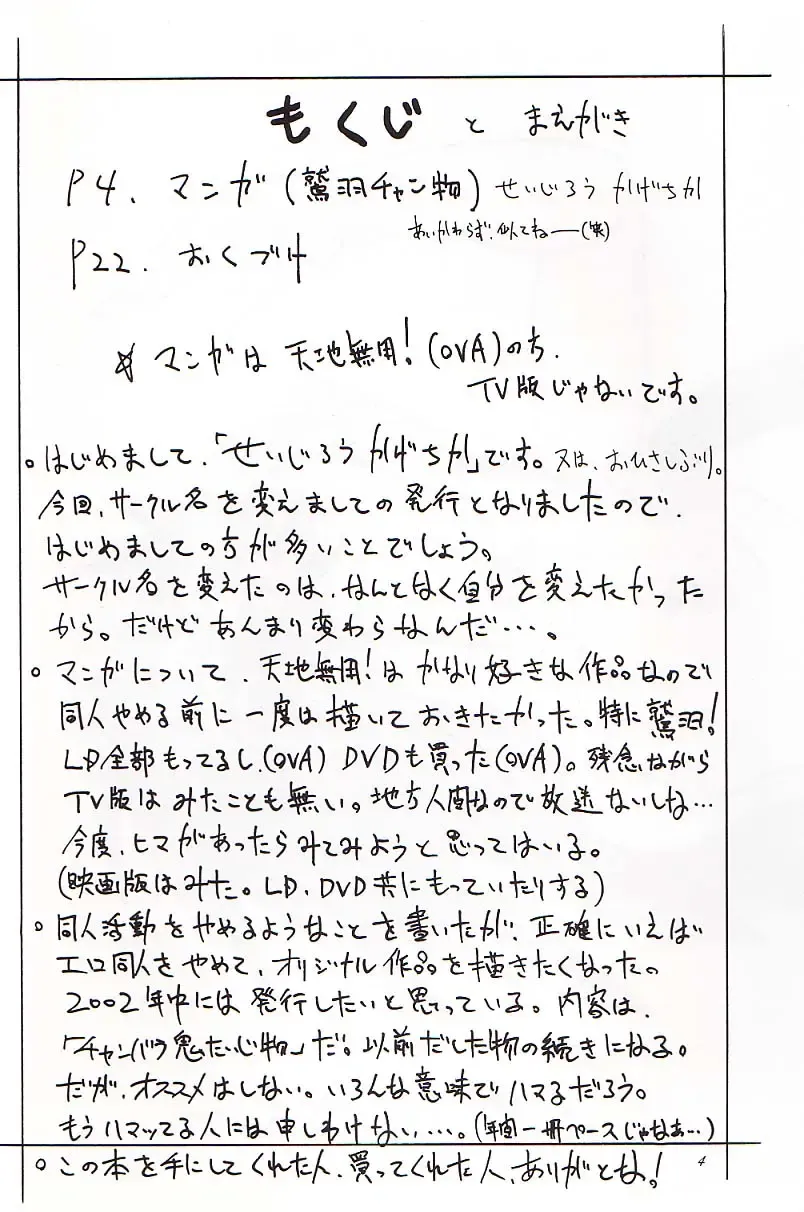 もくじ と まえがき
P4. マンガ(鷲羽チャン物) せいじろう かげちか
あいかわらず、似てねー(笑)
P22. おくづけ
☆ マンガは 天地無用!(OVA)のち.
TV版じゃないです。
○はじめまして.「せいじろう かげちか」です。又は、おひさしぶり。
今回、サークル名を変えましての発行となりましたので、
はじめましての方が多いことでしょう。
サークル名を変えたのは、なんとなく自分を変えたかった
から。だけど あんまり変わらなんだ…。
○ マンガについて、天地無用!は かなり好きな作品なので
同人やめる前に一度は描いておきたかった。特に鷲羽!
LD全部もってるし、(OVA) DVDも買った(OVA)。残念ながら
TV版は みたことも無い。地方人間なので放送ないしね…
今度、ヒマがあったらみてみようと思ってはいる。
(映画版はみた。LD、DVD共にもっていたりする)
○ 同人活動をやめるようなことを書いたが、正確にいえば
エロ同人をやめて、オリジナル作品を描きたくなったの
2002年中には 発行したいと思っている。内容は、
「チャンバラ鬼たいじ物」だ。以前だした物の続きになる。
だが、オススメはしない。いろんな意味でハマるだろう。
もうハマッてる人には申しわけない…。(年間一冊ペースじゃなぁ…)
○ この本を手にしてくれた人、買ってくれた人、ありがとな!
4